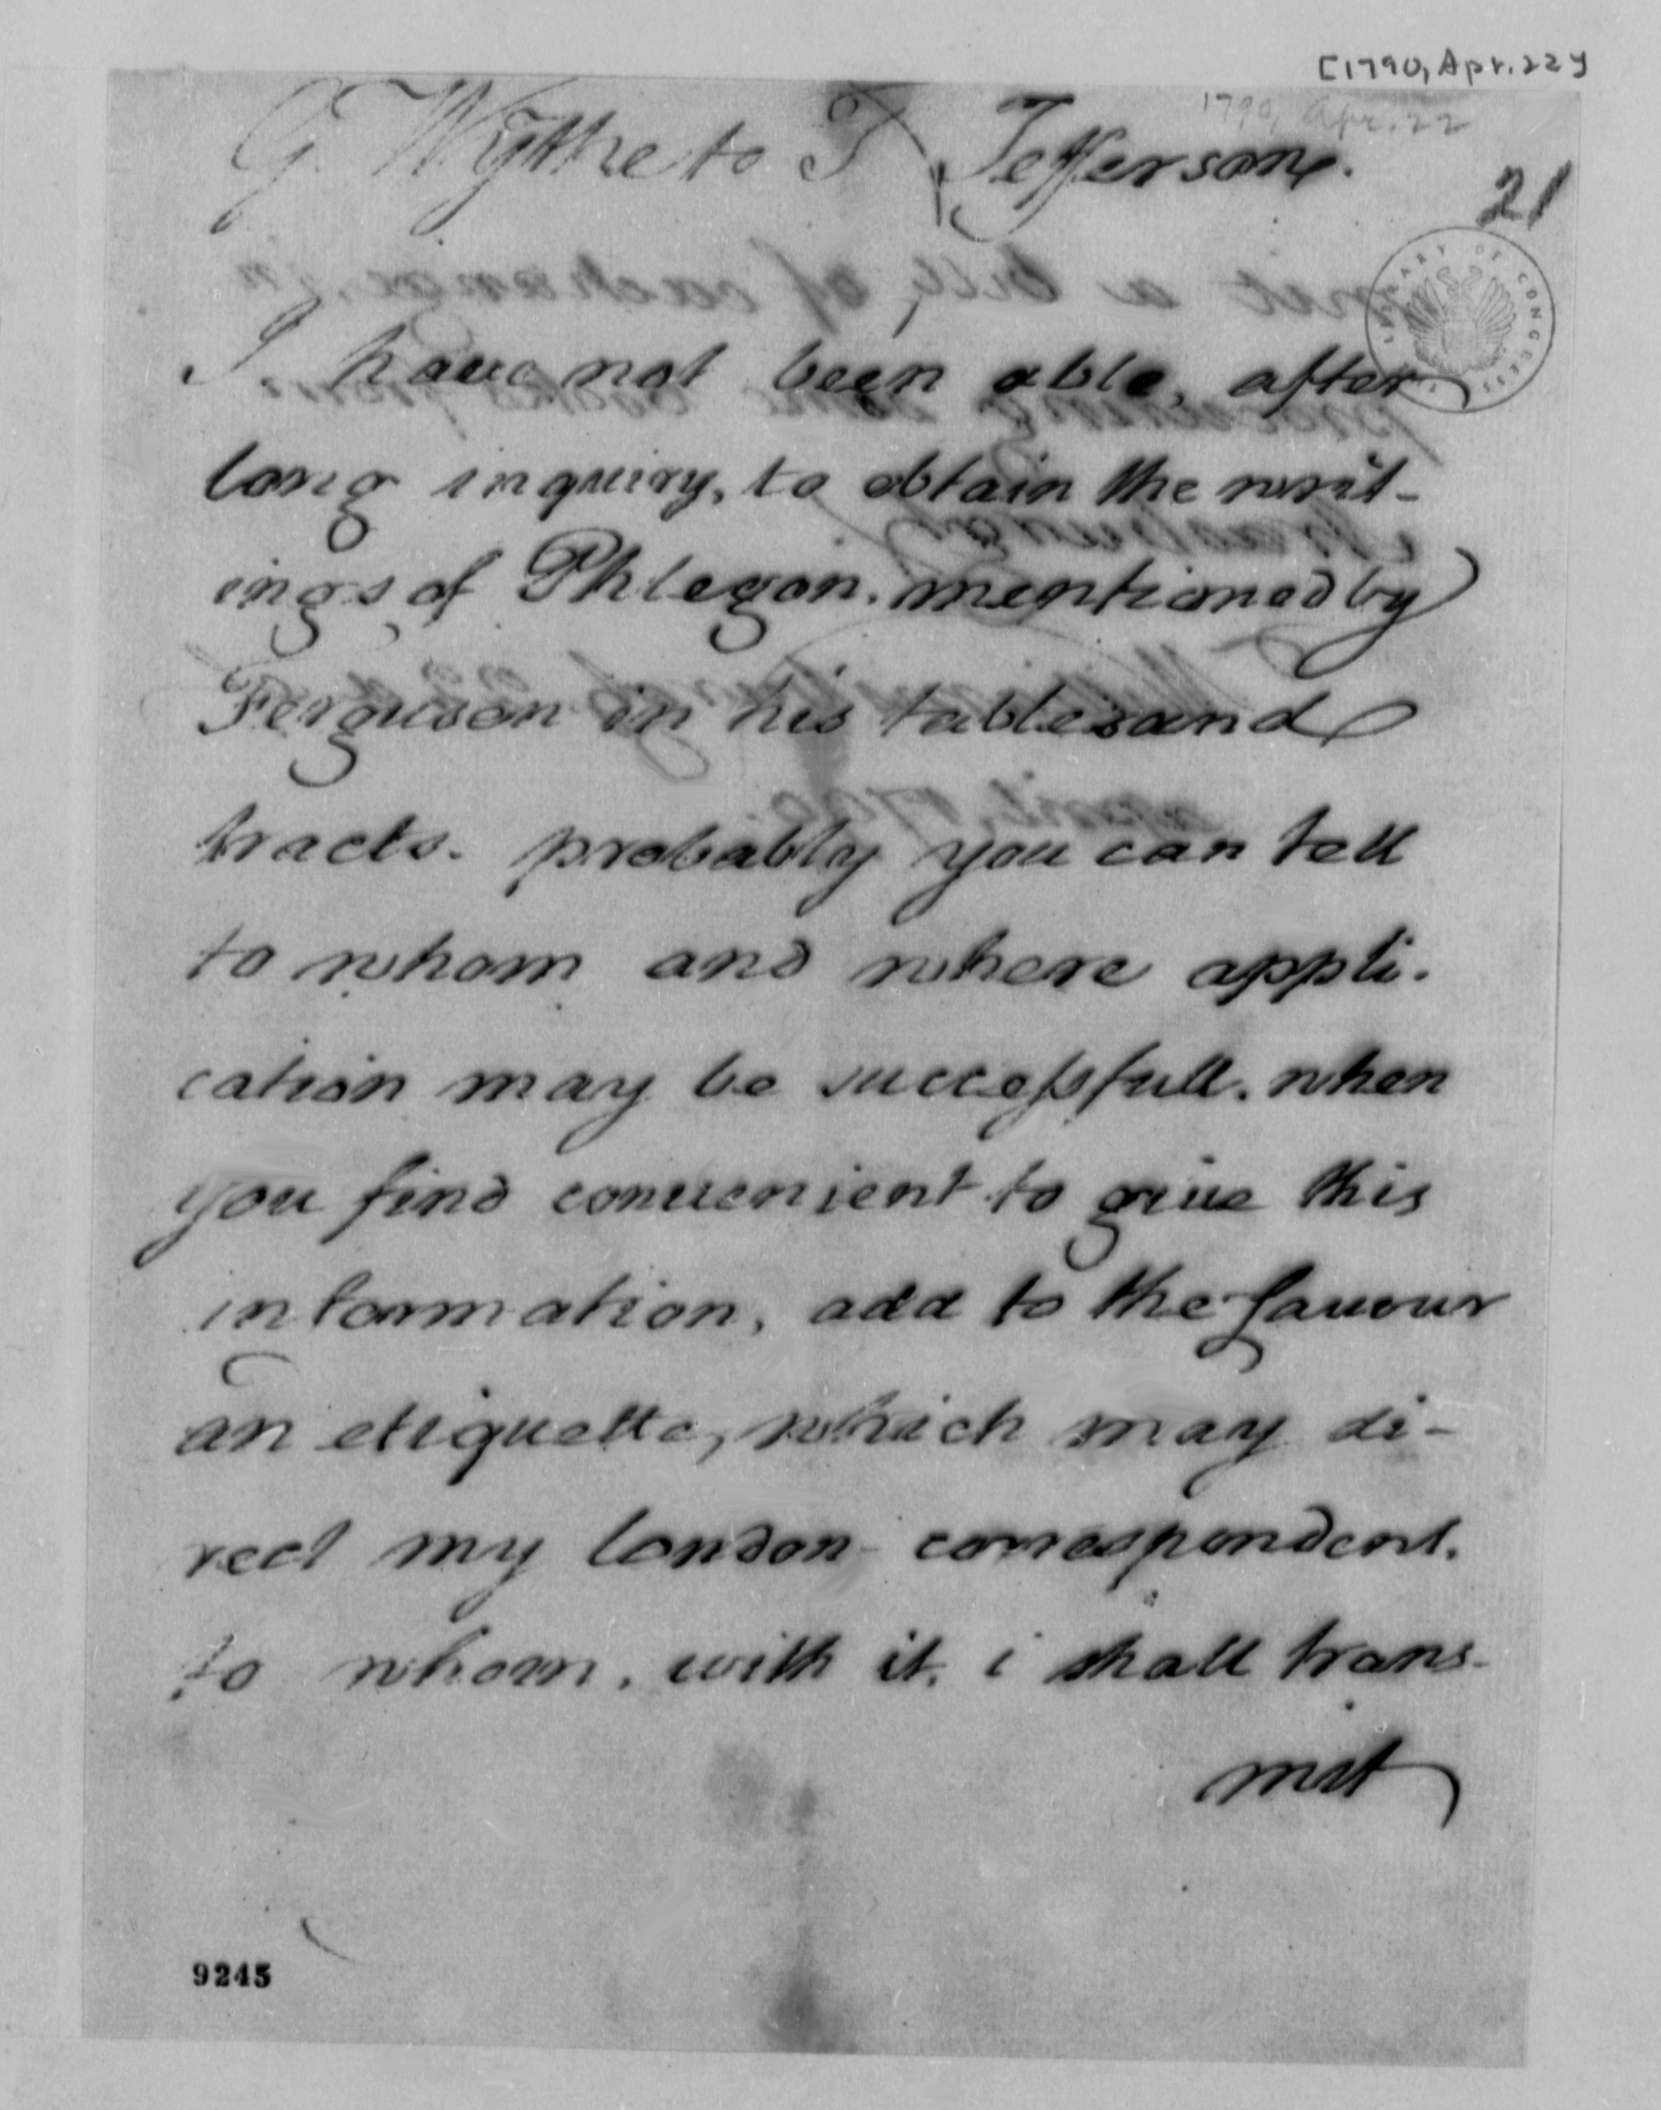 [1790, Apr. 22]
1790, Apr. 22
G Wythe to T Jefferson.
21
LIBRARY OF CONGRESS
I have not been able, after
long inquiry, to obtain the writ-
ings of Phlegon, mentioned by
Ferguson in his tables and
tracts. probably you can tell
to whom and where appli-
cation may be successfull. when
you find convenient to give this
information, add to the favour
an etiquette, which may di-
rect my london correspondent,
to whom, with it, i shall trans-
mit
9245